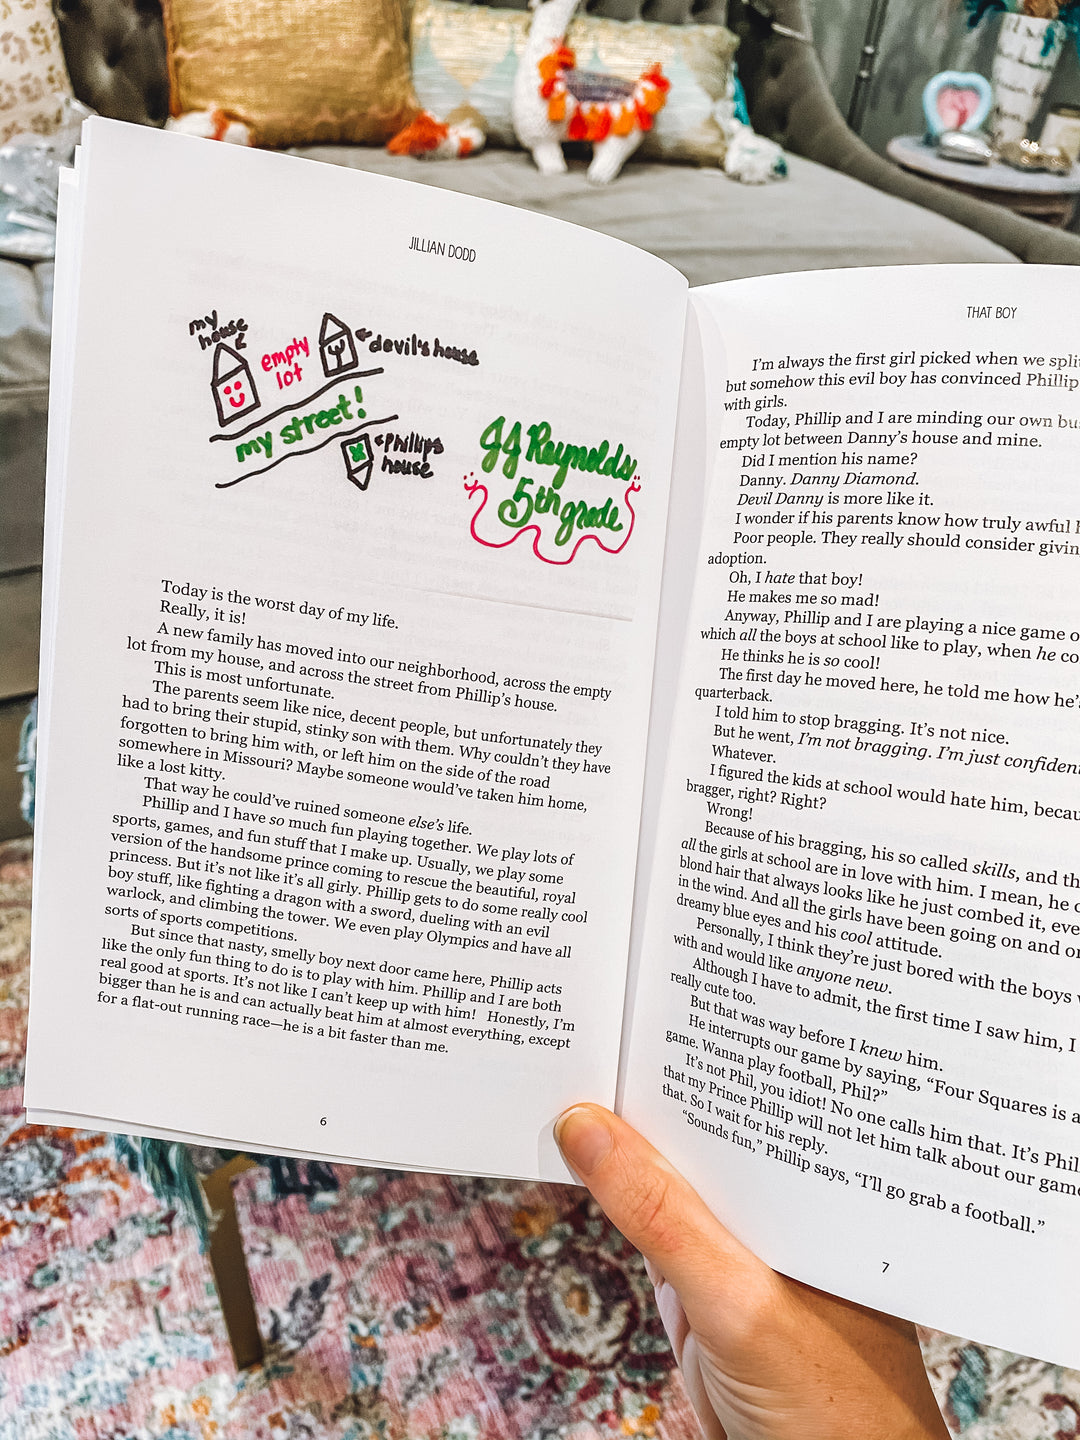 JILLIAN DODD
my
house
empty
lot
devil's house
my street!
Phillips
house
JJ Reynolds
5th grade
Today is the worst day of my life.
Really, it is!
A new family has moved into our neighborhood, across the empty
lot from my house, and across the street from Phillip's house.
This is most unfortunate.
The parents seem like nice, decent people, but unfortunately they
had to bring their stupid, stinky son with them. Why couldn't they have
forgotten to bring him with, or left him on the side of the road
somewhere in Missouri? Maybe someone would've taken him home,
like a lost kitty.
That way he could've ruined someone else's life.
Phillip and I have so much fun playing together. We play lots of
sports, games, and fun stuff that I make up. Usually, we play some
version of the handsome prince coming to rescue the beautiful, royal
princess. But it's not like it's all girly. Phillip gets to do some really cool
boy stuff, like fighting a dragon with a sword, dueling with an evil
warlock, and climbing the tower. We even play Olympics and have all
sorts of sports competitions.
But since that nasty, smelly boy next door came here, Phillip acts
like the only fun thing to do is to play with him. Phillip and I are both
real good at sports. It's not like I can't keep up with him! Honestly, I'm
bigger than he is and can actually beat him at almost everything, except
for a flat-out running race—he is a bit faster than me.
6
THAT BOY
I'm always the first girl picked when we spli
but somehow this evil boy has convinced Phillip
with girls.
Today, Phillip and I are minding our own bu
empty lot between Danny's house and mine.
Did I mention his name?
Danny. Danny Diamond.
Devil Danny is more like it.
I wonder if his parents know how truly awful
Poor people. They really should consider givin
adoption.
Oh, I hate that boy!
He makes me so mad!
Anyway, Phillip and I are playing a nice game o
which all the boys at school like to play, when he co
He thinks he is so cool!
The first day he moved here, he told me how he's
quarterback.
I told him to stop bragging. It's not nice.
But he went, I'm not bragging. I'm just confiden
Whatever.
I figured the kids at school would hate him, becau
bragger, right? Right?
Wrong!
Because of his bragging, his so called skills, and th
all the girls at school are in love with him. I mean, he
blond hair that always looks like he just combed it, eve
in the wind. And all the girls have been going on and
dreamy blue eyes and his cool attitude.
Personally, I think they're just bored with the boys
with and would like anyone new.
Although I have to admit, the first time I saw him, I
really cute too.
But that was way before I knew him.
He interrupts our game by saying, "Four Squares is a
game. Wanna play football, Phil?"
It's not Phil, you idiot! No one calls him that. It's Phil
that my Prince Phillip will not let him talk about our game
that. So I wait for his reply.
"Sounds fun," Phillip says, "I'll go grab a football."
7